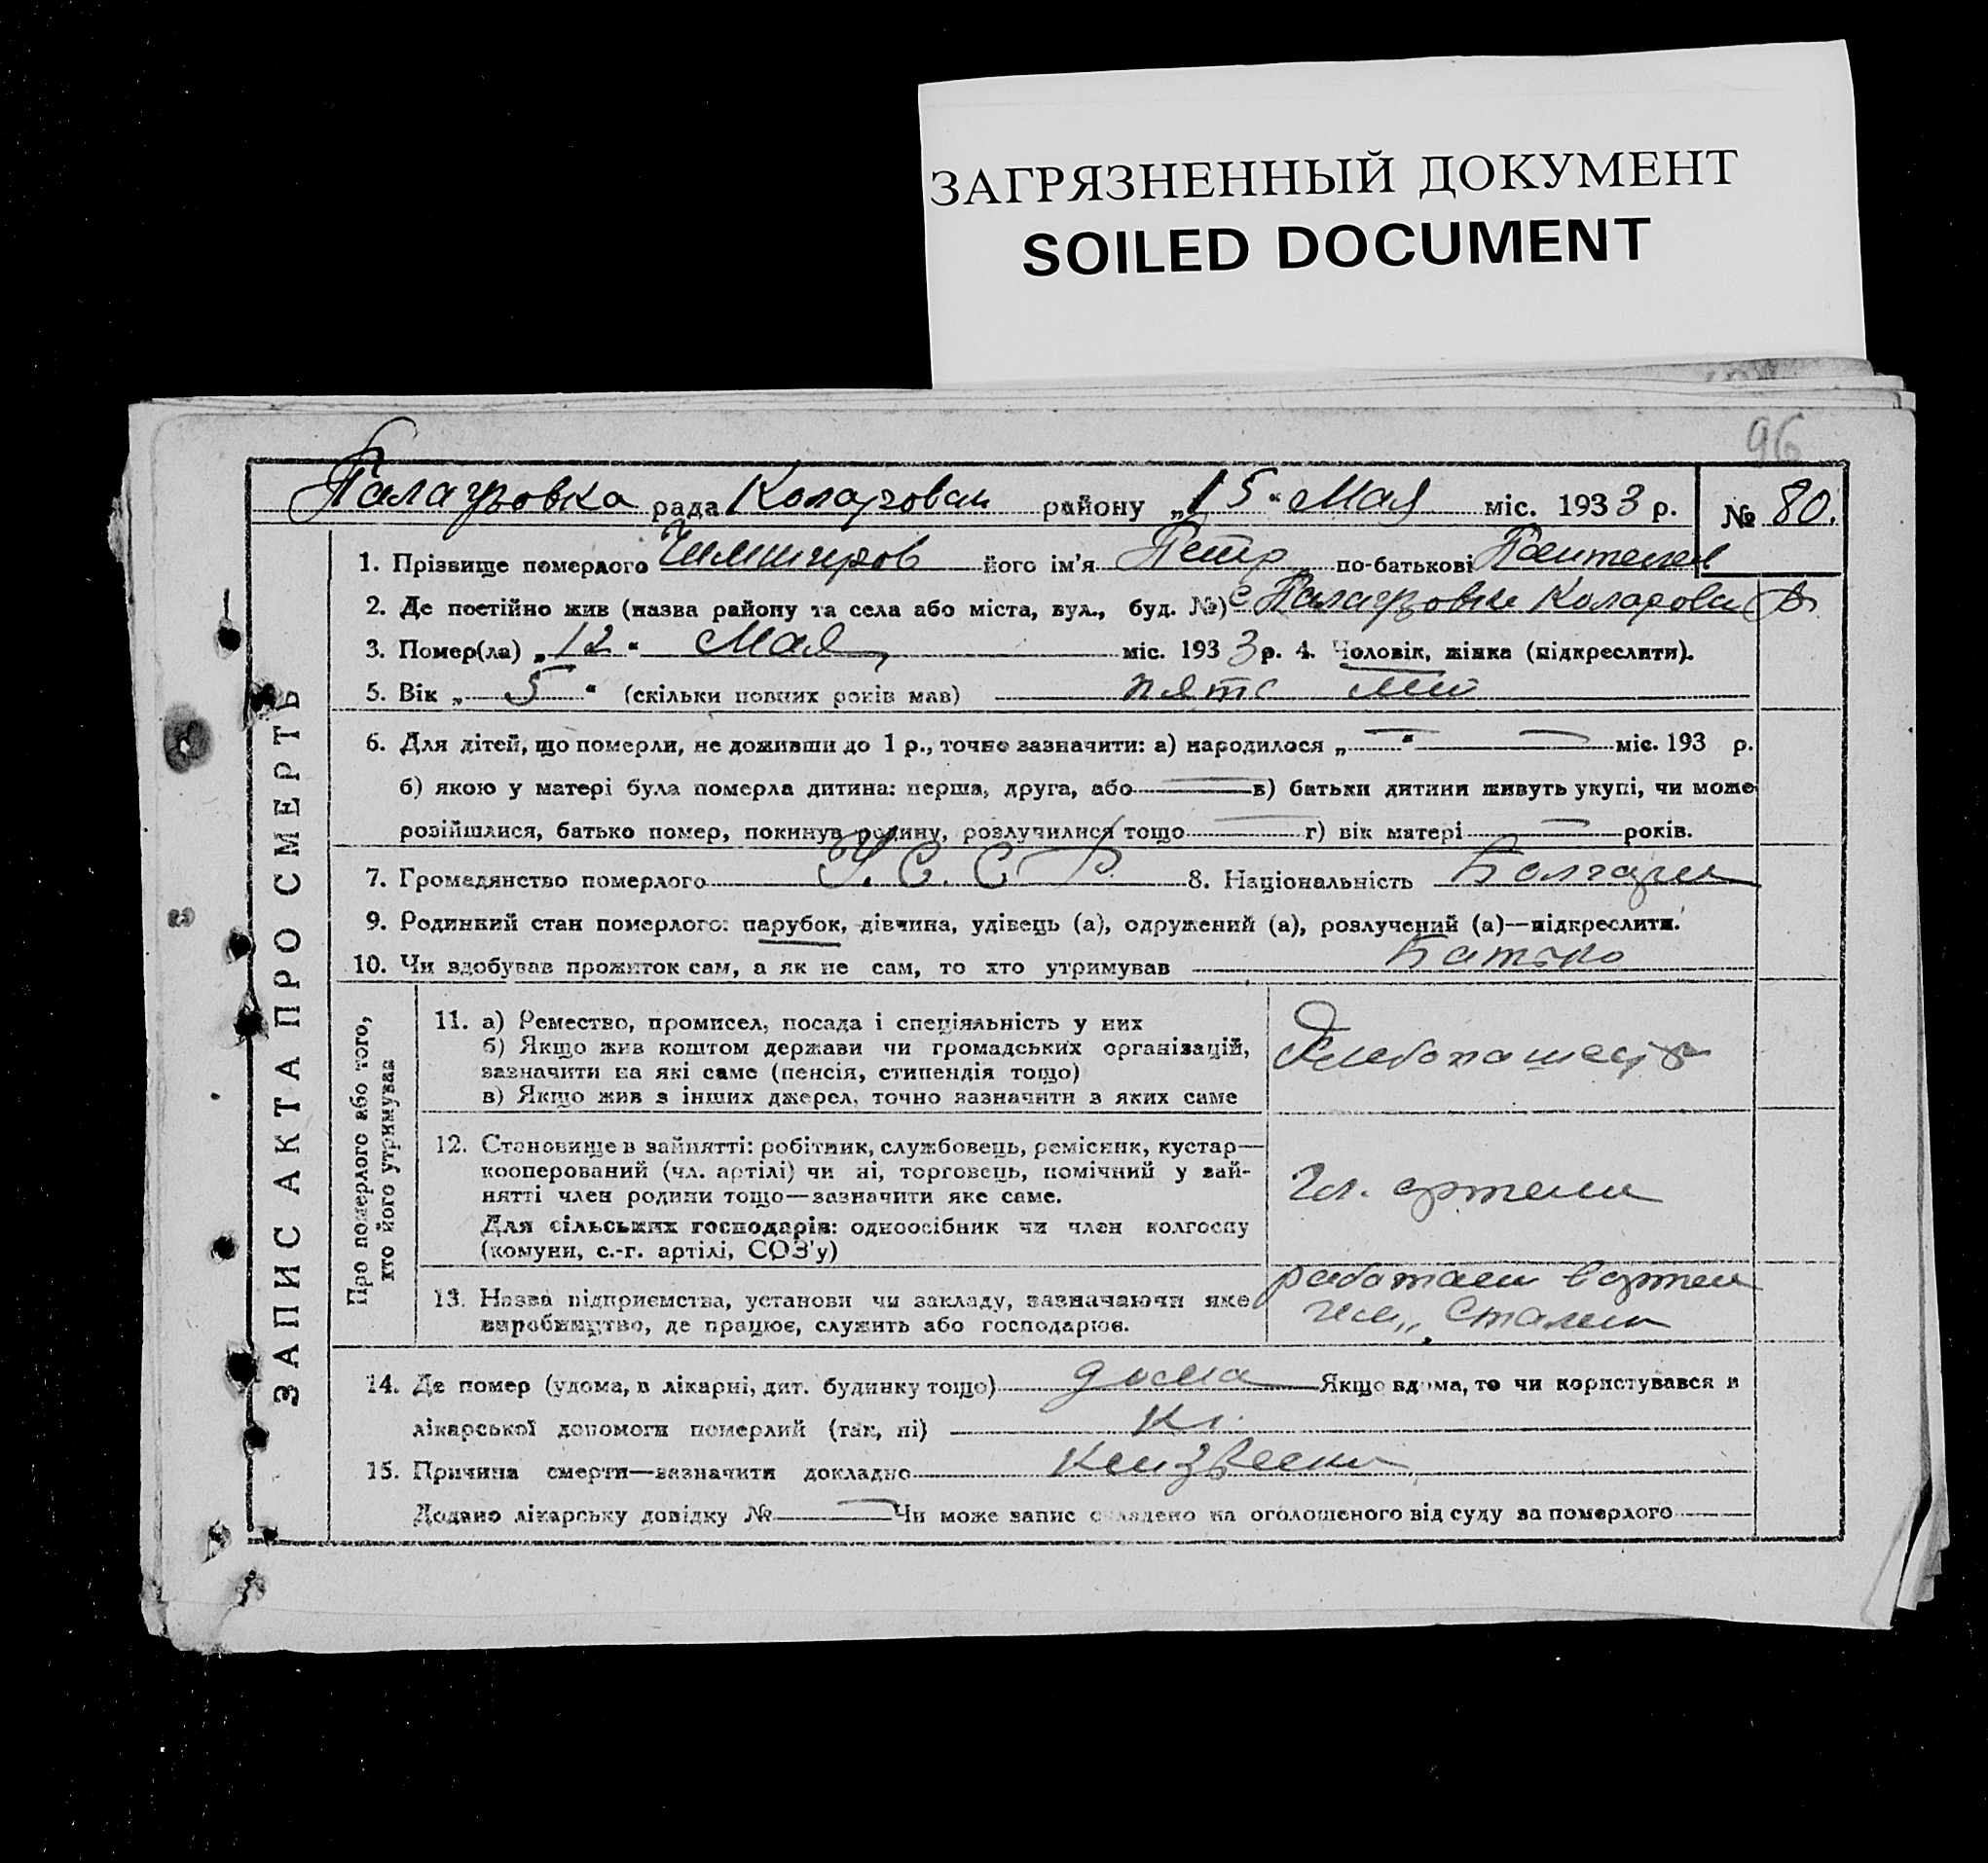 ЗАГРЯЗНЕННЫЙ ДОКУМЕНТ
SOILED DOCUMENT
96
Палаузовка рада Коларовск району „15“ Мая міс. 1933 р. № 80.
1. Прізвище померлого його ім'я Петр по-батькові Пантелеев
2. Де постійно жив (назва району та села або міста, вул., буд. №) с Палаузовки Коларовск
3. Помер(ла) „12“ Мая міс. 1933 р. 4. Чоловік, жінка (підкреслити).
5. Вік „5“ (скільки повних років мав) пять лет
6. Для дітей, що померли, не доживши до 1 р., точно зазначити: а) народилося „—“ — міс. 193 р.
б) якою у матері була померла дитина: перша, друга, або — в) батьки дитини живуть укупі, чи може
розійшлися, батько помер, покинув родину, розлучилися тощо — г) вік матері — років.
7. Громадянство померлого У. С. С. Р. 8. Національність Болгарин
9. Родинкий стан померлого: парубок, дівчина, удівець (а), одружений (а), розлучений (а)—підкреслити.
10. Чи здобував прожиток сам, а як не сам, то хто утримував Батько
ЗАПИС АКТА ПРО СМЕРТЬ
Про померлого або того,
хто його утримував
11. а) Ремество, промисел, посада і спеціяльність у них
б) Якщо жив коштом держави чи громадських організацій,
зазначити на які саме (пенсія, стипендія тощо)
в) Якщо жив з інших джерел, точно зазначити з яких саме
Хлебопашество
12. Становище в зайнятті: робітник, службовець, ремісник, кустар—
кооперований (чл. артілі) чи ні, торговець, помічний у зай-
нятті член родини тощо—зазначити яке саме.
Для сільських господарів: одноосібник чи член колгоспу
(комуни, с.-г. артілі, СОЗ'у)
Чл. артели
13. Назва підприємства, установи чи закладу, зазначаючи яке
виробництво, де працює, служить або господарює.
работает в артел
им„ Сталин
14. Де помер (удома, в лікарні, дит. будинку тощо) дома Якщо вдома, то чи користувався з
лікарської допомоги померлий (так, ні)
15. Причина смерти—зазначити докладно неизвесно
Додано лікарську довідку № — Чи може запис складено на оголошеного від суду за померлого